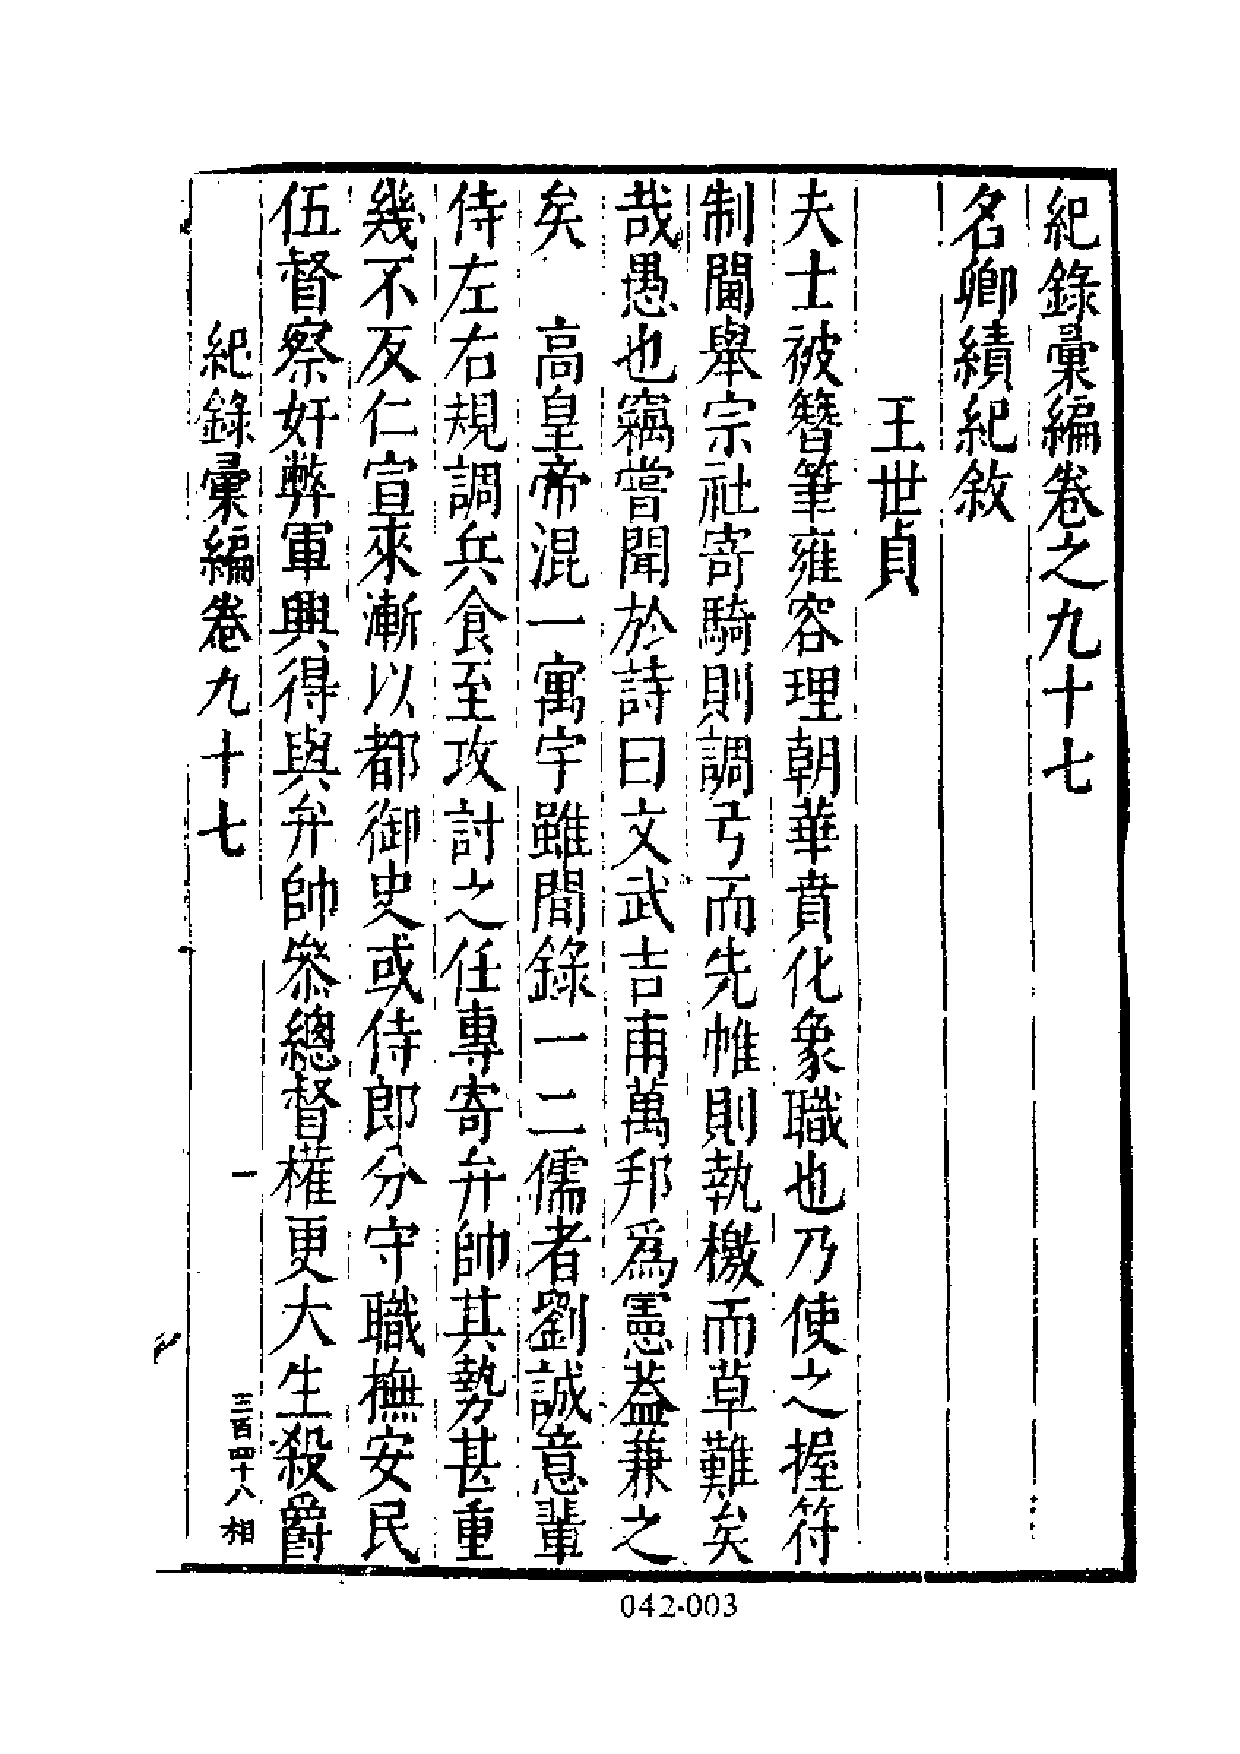 紀錄彙編卷之九十七
名卿績紀敘
王世貞
夫士被簪筆雍容理朝華賁化象職也乃使之握符
制閫舉宗社寄騎則調弓而先帷則執檄而草難矣
哉愚也竊嘗聞於詩曰文武吉甫萬邦爲憲蓋兼之
矣　高皇帝混一寓宇雖間錄一二儒者劉誠意輩
侍左右規調兵食至攻討之任專寄弁帥其勢甚重
幾不反仁宣來漸以都御史或侍郎分守職撫安民
伍督察奸弊軍興得與弁帥叅總督權更大生殺爵
紀錄彙編卷九十七　一　三百四十八相
042-003